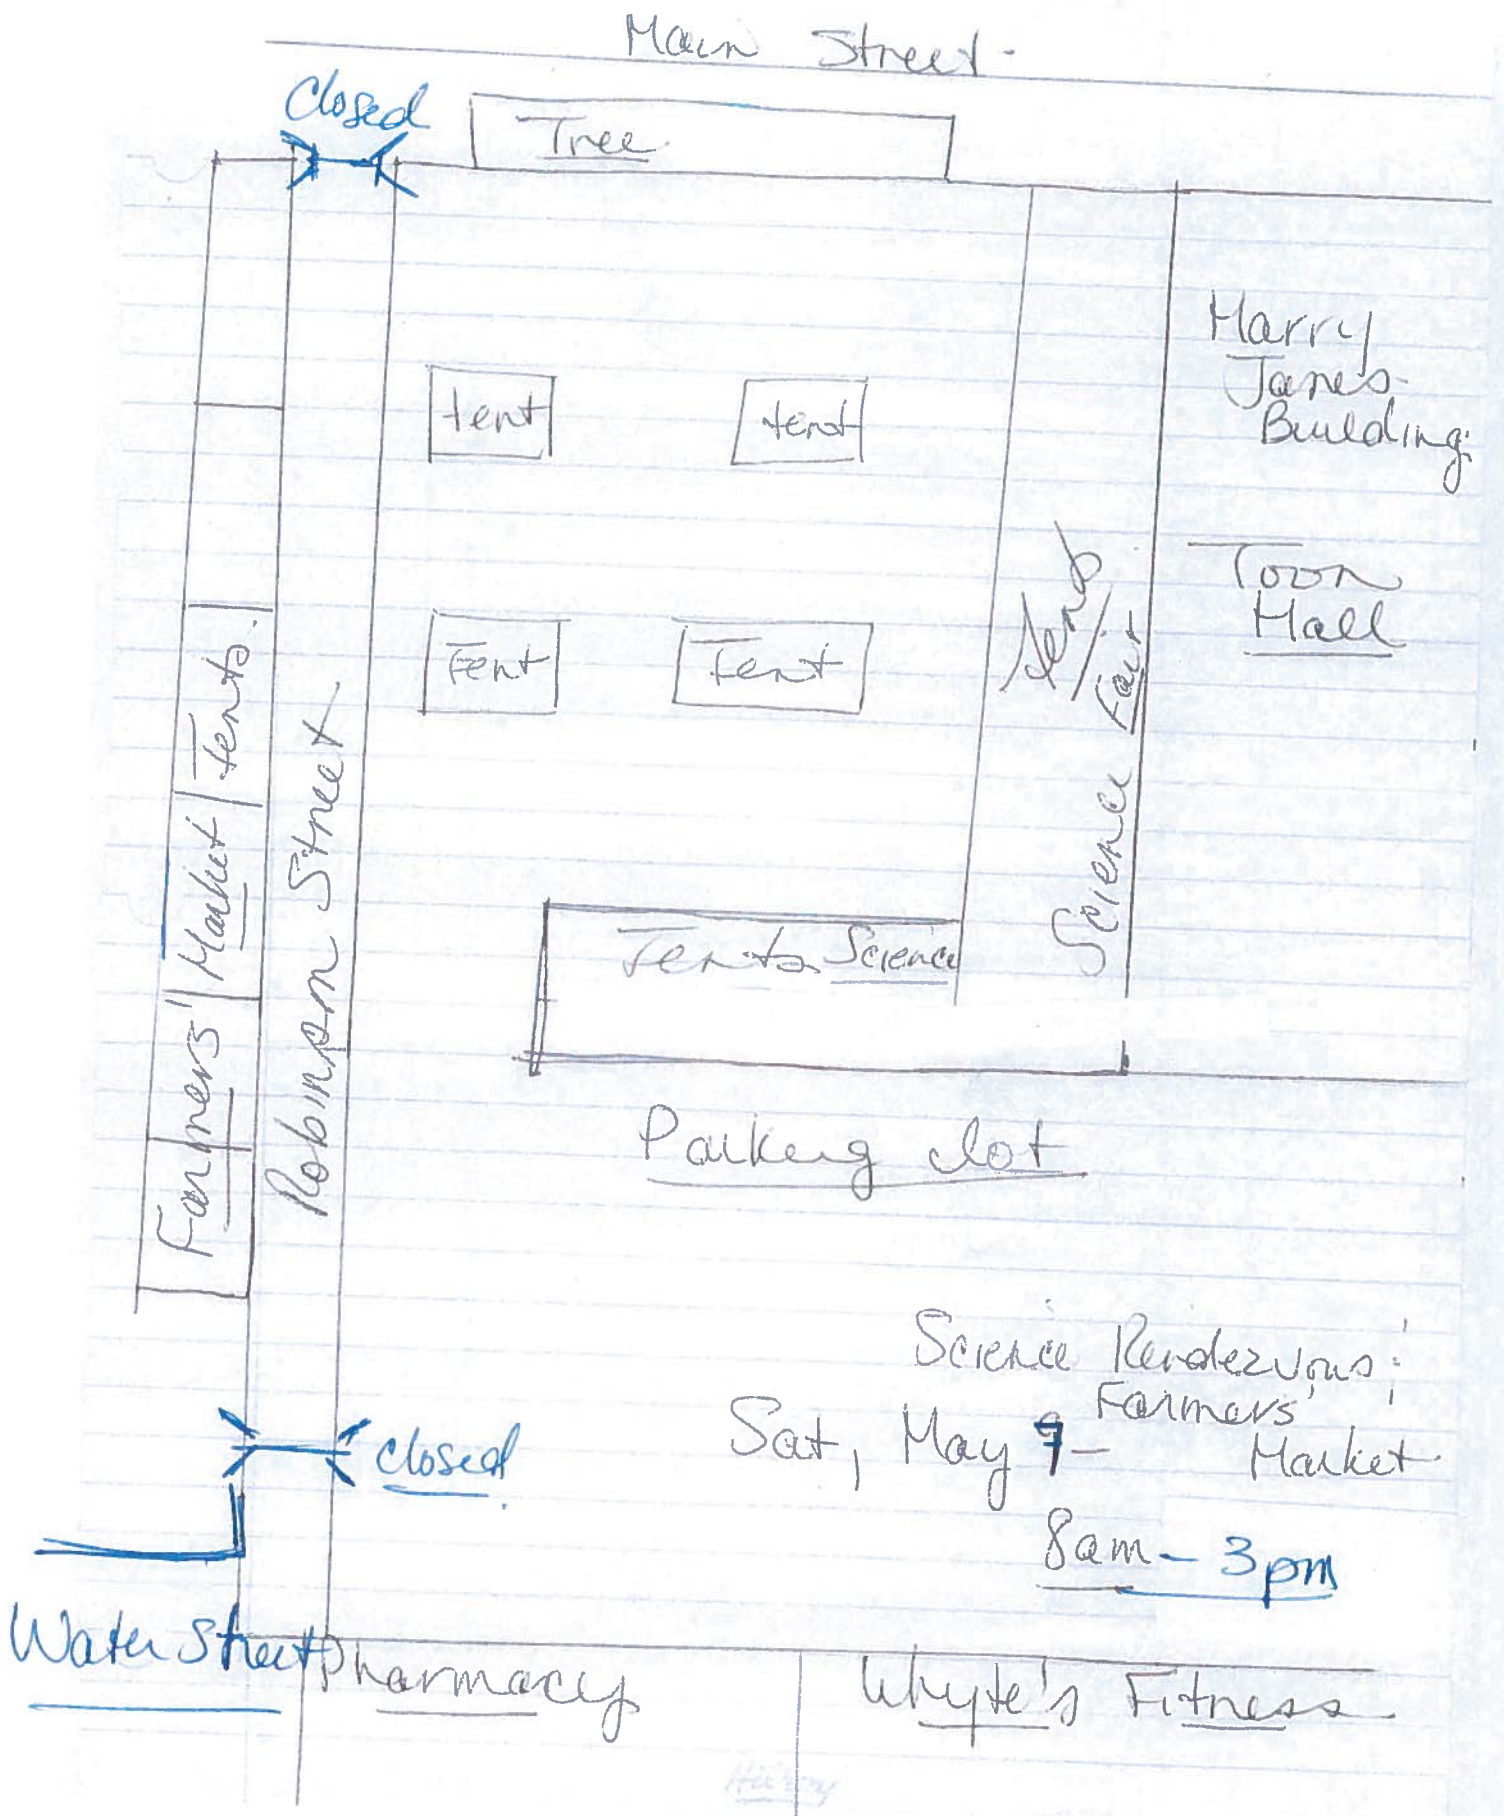 Main Street
Closed
Tree
Harry
Janes
Building
tent
tent
Town
Hall
Tent
Tent
Tents
/
Science Fair
Farmers' Market Tents
Robinson Street
Tents Science
Parking Lot
Science Rendezvous!
Farmers'
Sat, May 9 - Market
8am - 3pm
Closed
Water Street
Pharmacy
Whyte's Fitness